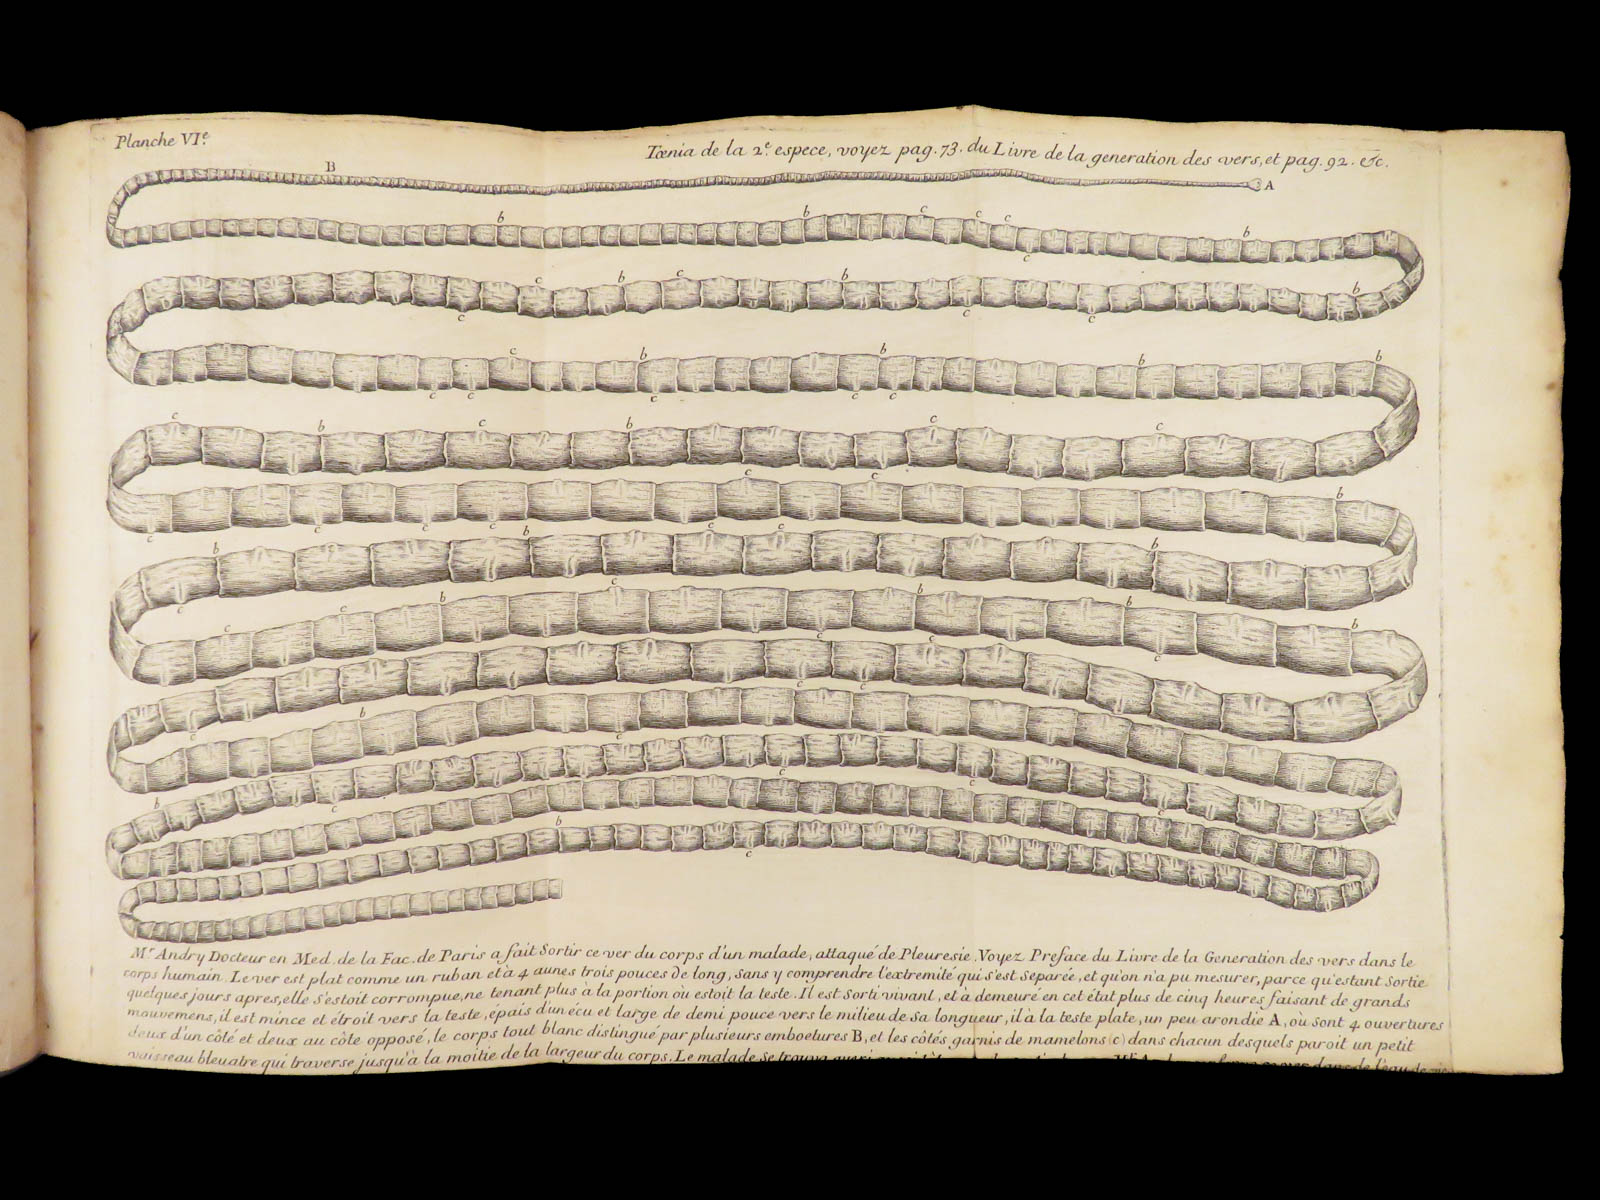 Planche VI.e
Tœnia de la 2.e espece, voyez pag. 73. du Livre de la generation des vers, et pag. 92. &c.
B
A
b b c c c b
c
c b c b b
c c c
c b b b b
c c c c c
c b c b c c
c c b
c c c c c c
b b b
c c
c b b b
c
c c c
c
c c
b
c
b c c
c
c
b
c
M.r Andry Docteur en Med. de la Fac. de Paris a fait Sortir ce ver du corps d'un malade, attaqué de Pleuresie. Voyez Preface du Livre de la Generation des vers dans le
corps humain. Le ver est plat comme un ruban et à 4 aunes trois pouces de long, sans y comprendre l'extremité qui s'est Separée, et qu'on n'a pu mesurer, parce qu'estant Sortie
quelques jours apres, elle s'estoit corrompue, ne tenant plus à la portion où estoit la teste. Il est Sorti vivant, et à demeuré en cet état plus de cinq heures faisant de grands
mouvemens, il est mince et étroit vers la teste, épais d'un écu et large de demi pouce vers le milieu de Sa longueur, il à la teste plate, un peu arondie A, où sont 4 ouvertures
deux d'un côté et deux au côte opposé, le corps tout blanc distingué par plusieurs emboetures B, et les côtés garnis de mamelons (c) dans chacun desquels paroit un petit
vaisseau bleuatre qui traverse jusqu'à la moitie de la largeur du corps. Le malade Se trouva